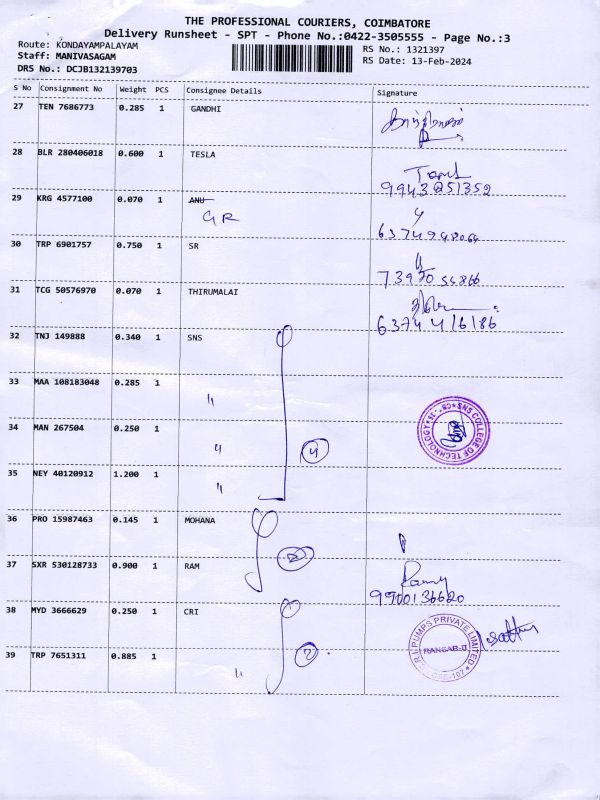 THE PROFESSIONAL COURIERS, COIMBATORE
Delivery Runsheet - SPT - Phone No.:0422-3505555 - Page No.:3
Route: KONDAYAMPALAYAM
Staff: MANIVASAGAM
DRS No.: DCJB132139703
RS No.: 1321397
RS Date: 13-Feb-2024
S No Consignment No Weight PCS Consignee Details Signature
27 TEN 7686773 0.285 1 GANDHI
28 BLR 280406018 0.600 1 TESLA
9943251352
29 KRG 4577100 0.070 1 ANU
GR
30 TRP 6901757 0.750 1 SR
31 TCG 50576970 0.070 1 THIRUMALAI
32 TNJ 149888 0.340 1 SNS
33 MAA 108183048 0.285 1 "
34 MAN 267504 0.250 1 " 4
SNS COLLEGE OF TECHNOLOGY
35 NEY 40120912 1.200 1 "
36 PRO 15987463 0.145 1 MOHANA
37 SXR 530128733 0.900 1 RAM 2
9900136620
38 MYD 3666629 0.250 1 CRI
C.R.I. PUMPS PRIVATE LIMITED
39 TRP 7651311 0.885 1 " 2